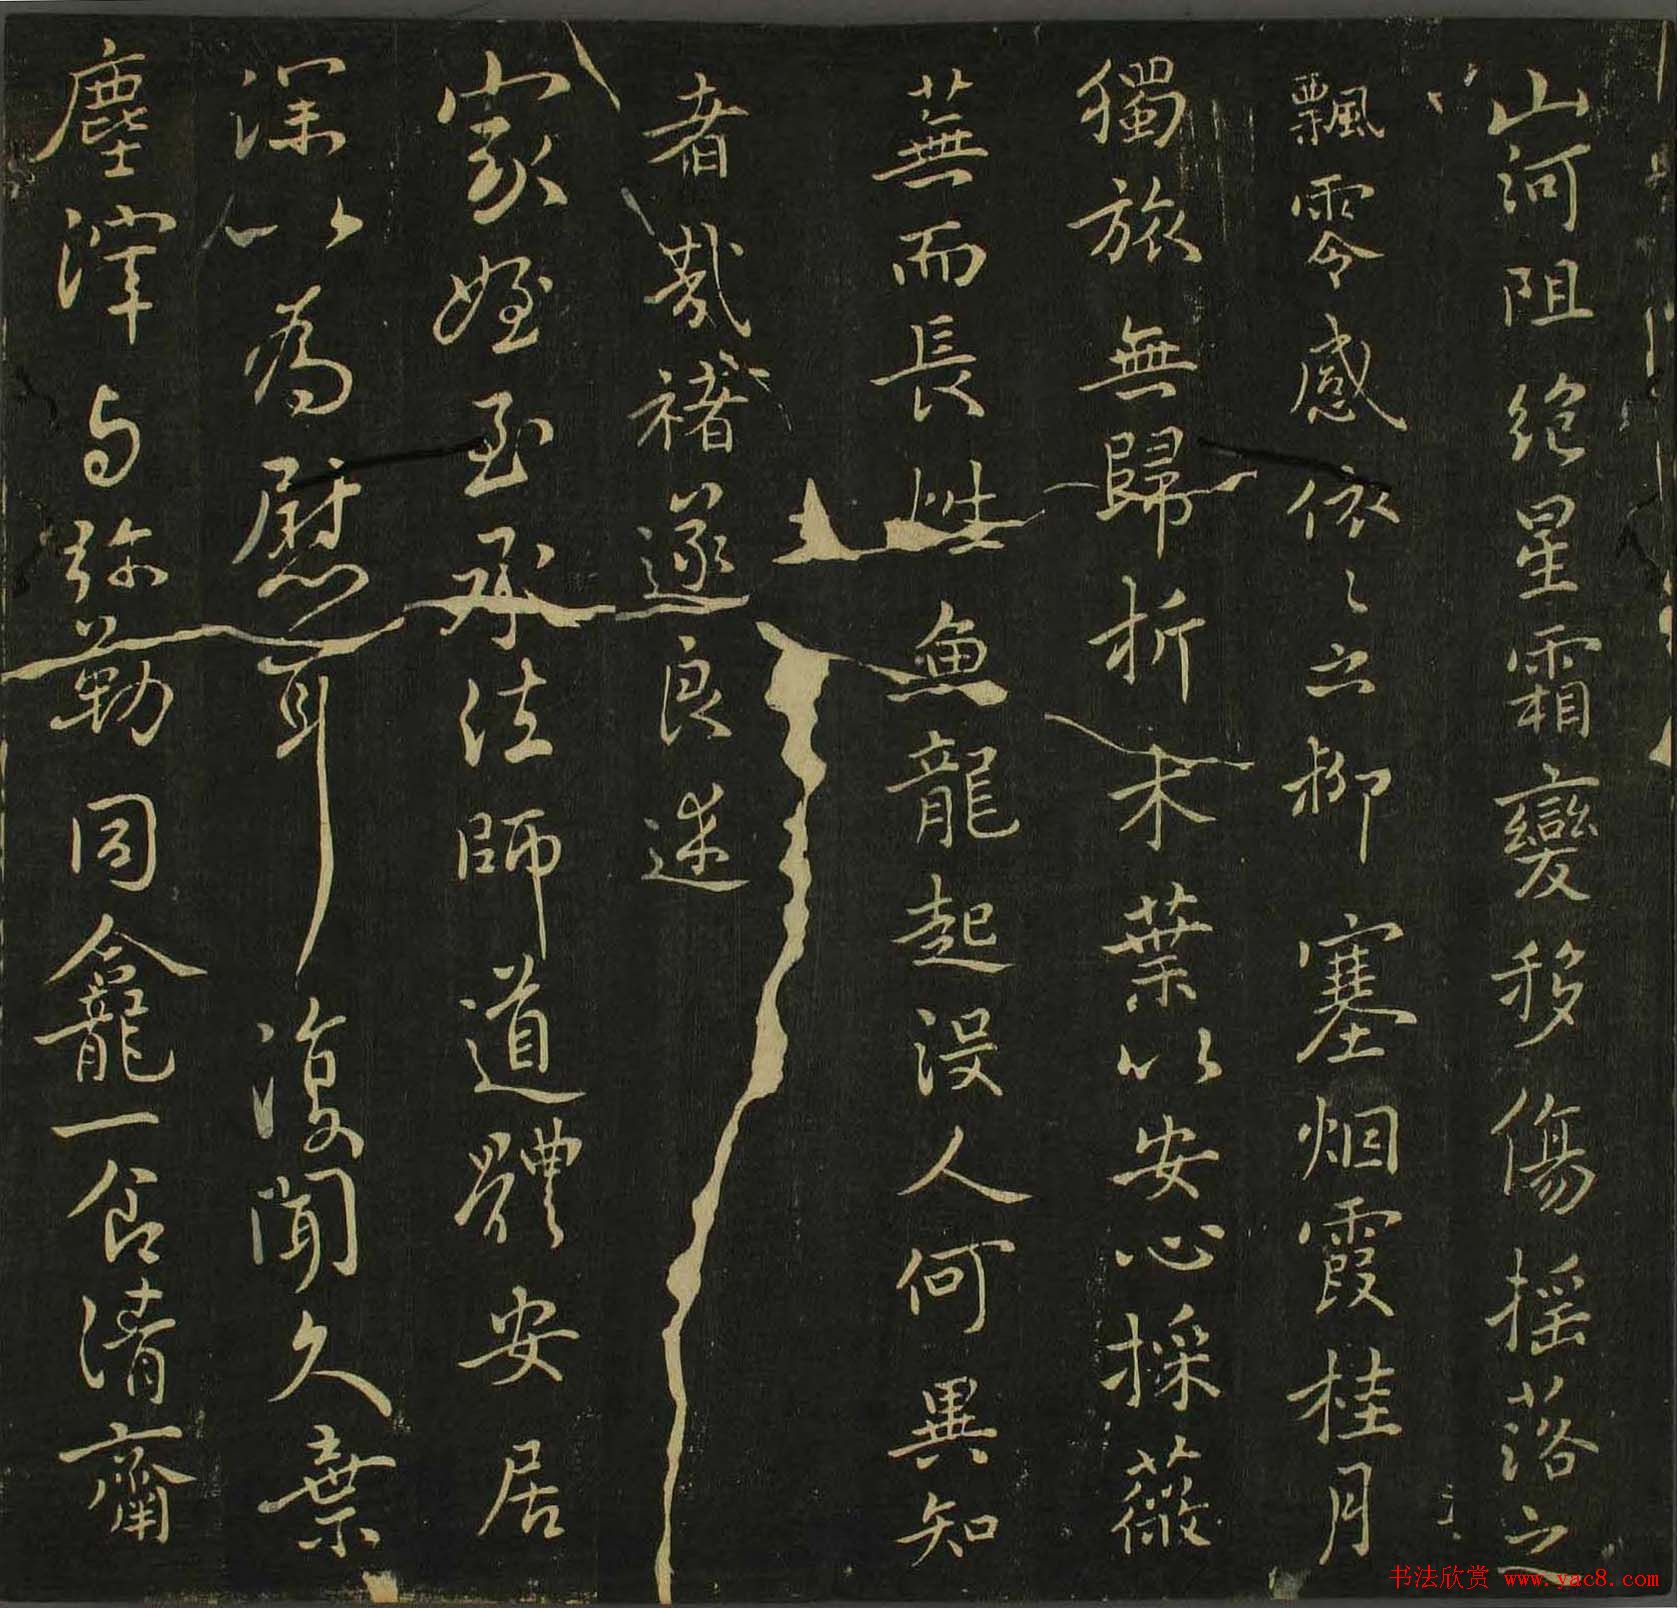 山河阻绝星霜變移傷摇落之
飄零感依々之柳塞烟霞桂月
獨旅無歸折木葉以安心採薇
蕪而長性魚龍起没人何異知
者哉褚遂良述
家姪至承法師道體安居
深以為慰耳復聞久棄
塵滓与弥勒同龕一食清齋
书法欣赏 www.yac8.com